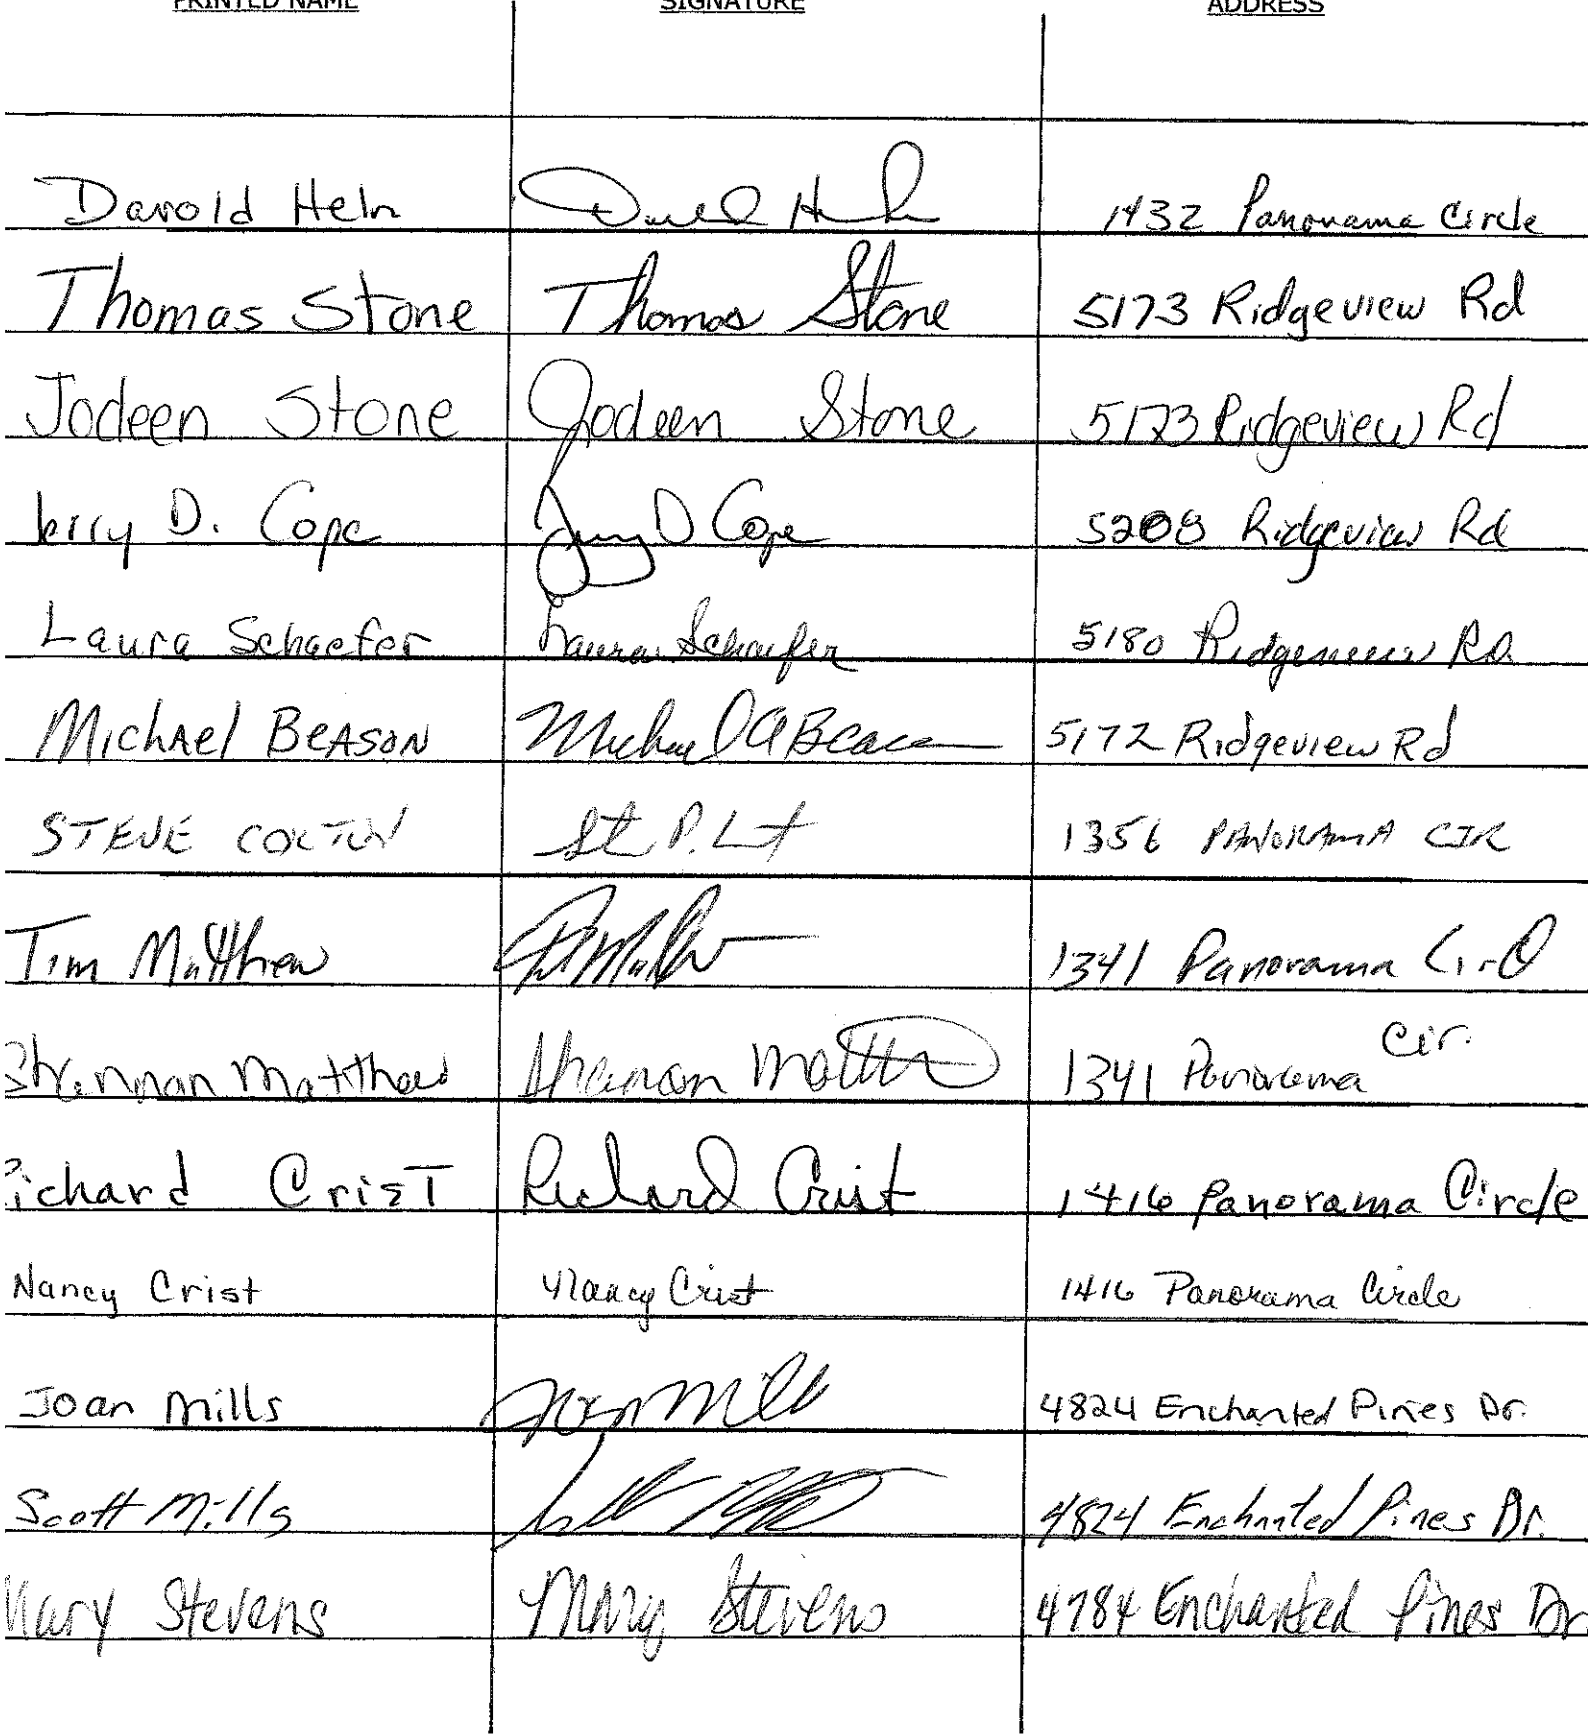 PRINTED NAME SIGNATURE ADDRESS
Darold Hein Darold 1432 Panorama Circle
Thomas Stone Thomas Stone 5173 Ridgeview Rd
Jodeen Stone Jodeen Stone 5173 Ridgeview Rd
Jerry D. Cope Jerry D Cope 5208 Ridgeview Rd
Laura Schaefer Laura Schaefer 5180 Ridgeview Rd.
Michael BEASON Michael A Beason 5172 Ridgeview Rd
STEVE St P. 1356 PANORAMA CIR
Tim Matthew 1341 Panorama Cir
Shannan Matthew Shannan Matth 1341 Panorama Cir.
Richard Crist Richard Crist 1416 Panorama Circle
Nancy Crist Nancy Crist 1416 Panorama Circle
Joan Mills Joan Mills 4824 Enchanted Pines Dr.
Scott Mills Scott 4824 Enchanted Pines Dr.
Mary Stevens Mary Stevens 4784 Enchanted Pines Dr.